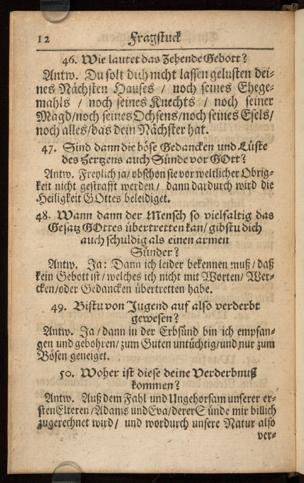 12 Fragstuck
46. Wie lautet das Zehende Gebott?
Antw. Du solt dich nicht lassen gelusten dei-
nes Nächsten Hauses / noch seines Ehege-
mahls / noch seines Knechts / noch seiner
Magd/noch seines Ochsens/noch seines Esels/
noch alles/das dein Nächster hat.
47. Sind dann die böse Gedancken und Lüste
des Hertzens auch Sünde vor GOtt?
Antw. Freylich ja/ obschon sie vor weltlicher Obrig-
keit nicht gestrafft werden/ dann dardurch wird die
Heiligkeit GOttes beleidiget.
48. Wann dann der Mensch so vielfaltig das
Gesatz GOttes übertretten kan/ gibstu dich
auch schuldig als einen armen
Sünder?
Antw. Ja: Dann ich leider bekennen muß/ daß
kein Gebott ist/ welches ich nicht mit Worten/ Wer-
cken/oder Gedancken übertretten habe.
49. Bistu von Jugend auf also verderbt
gewesen?
Antw. Ja/ dann in der Erbsünd bin ich empfan-
gen und gebohren/ zum Guten untüchtig/und nur zum
Bösen geneiget.
50. Woher ist diese deine Verderbnuß
kommen?
Antw. Auß dem Fahl und Ungehorsam unserer er-
sten Elteren/ Adams und Eva/ derer Sünde mir billich
zugerechnet wird/ und wordurch unsere Natur also
ver-